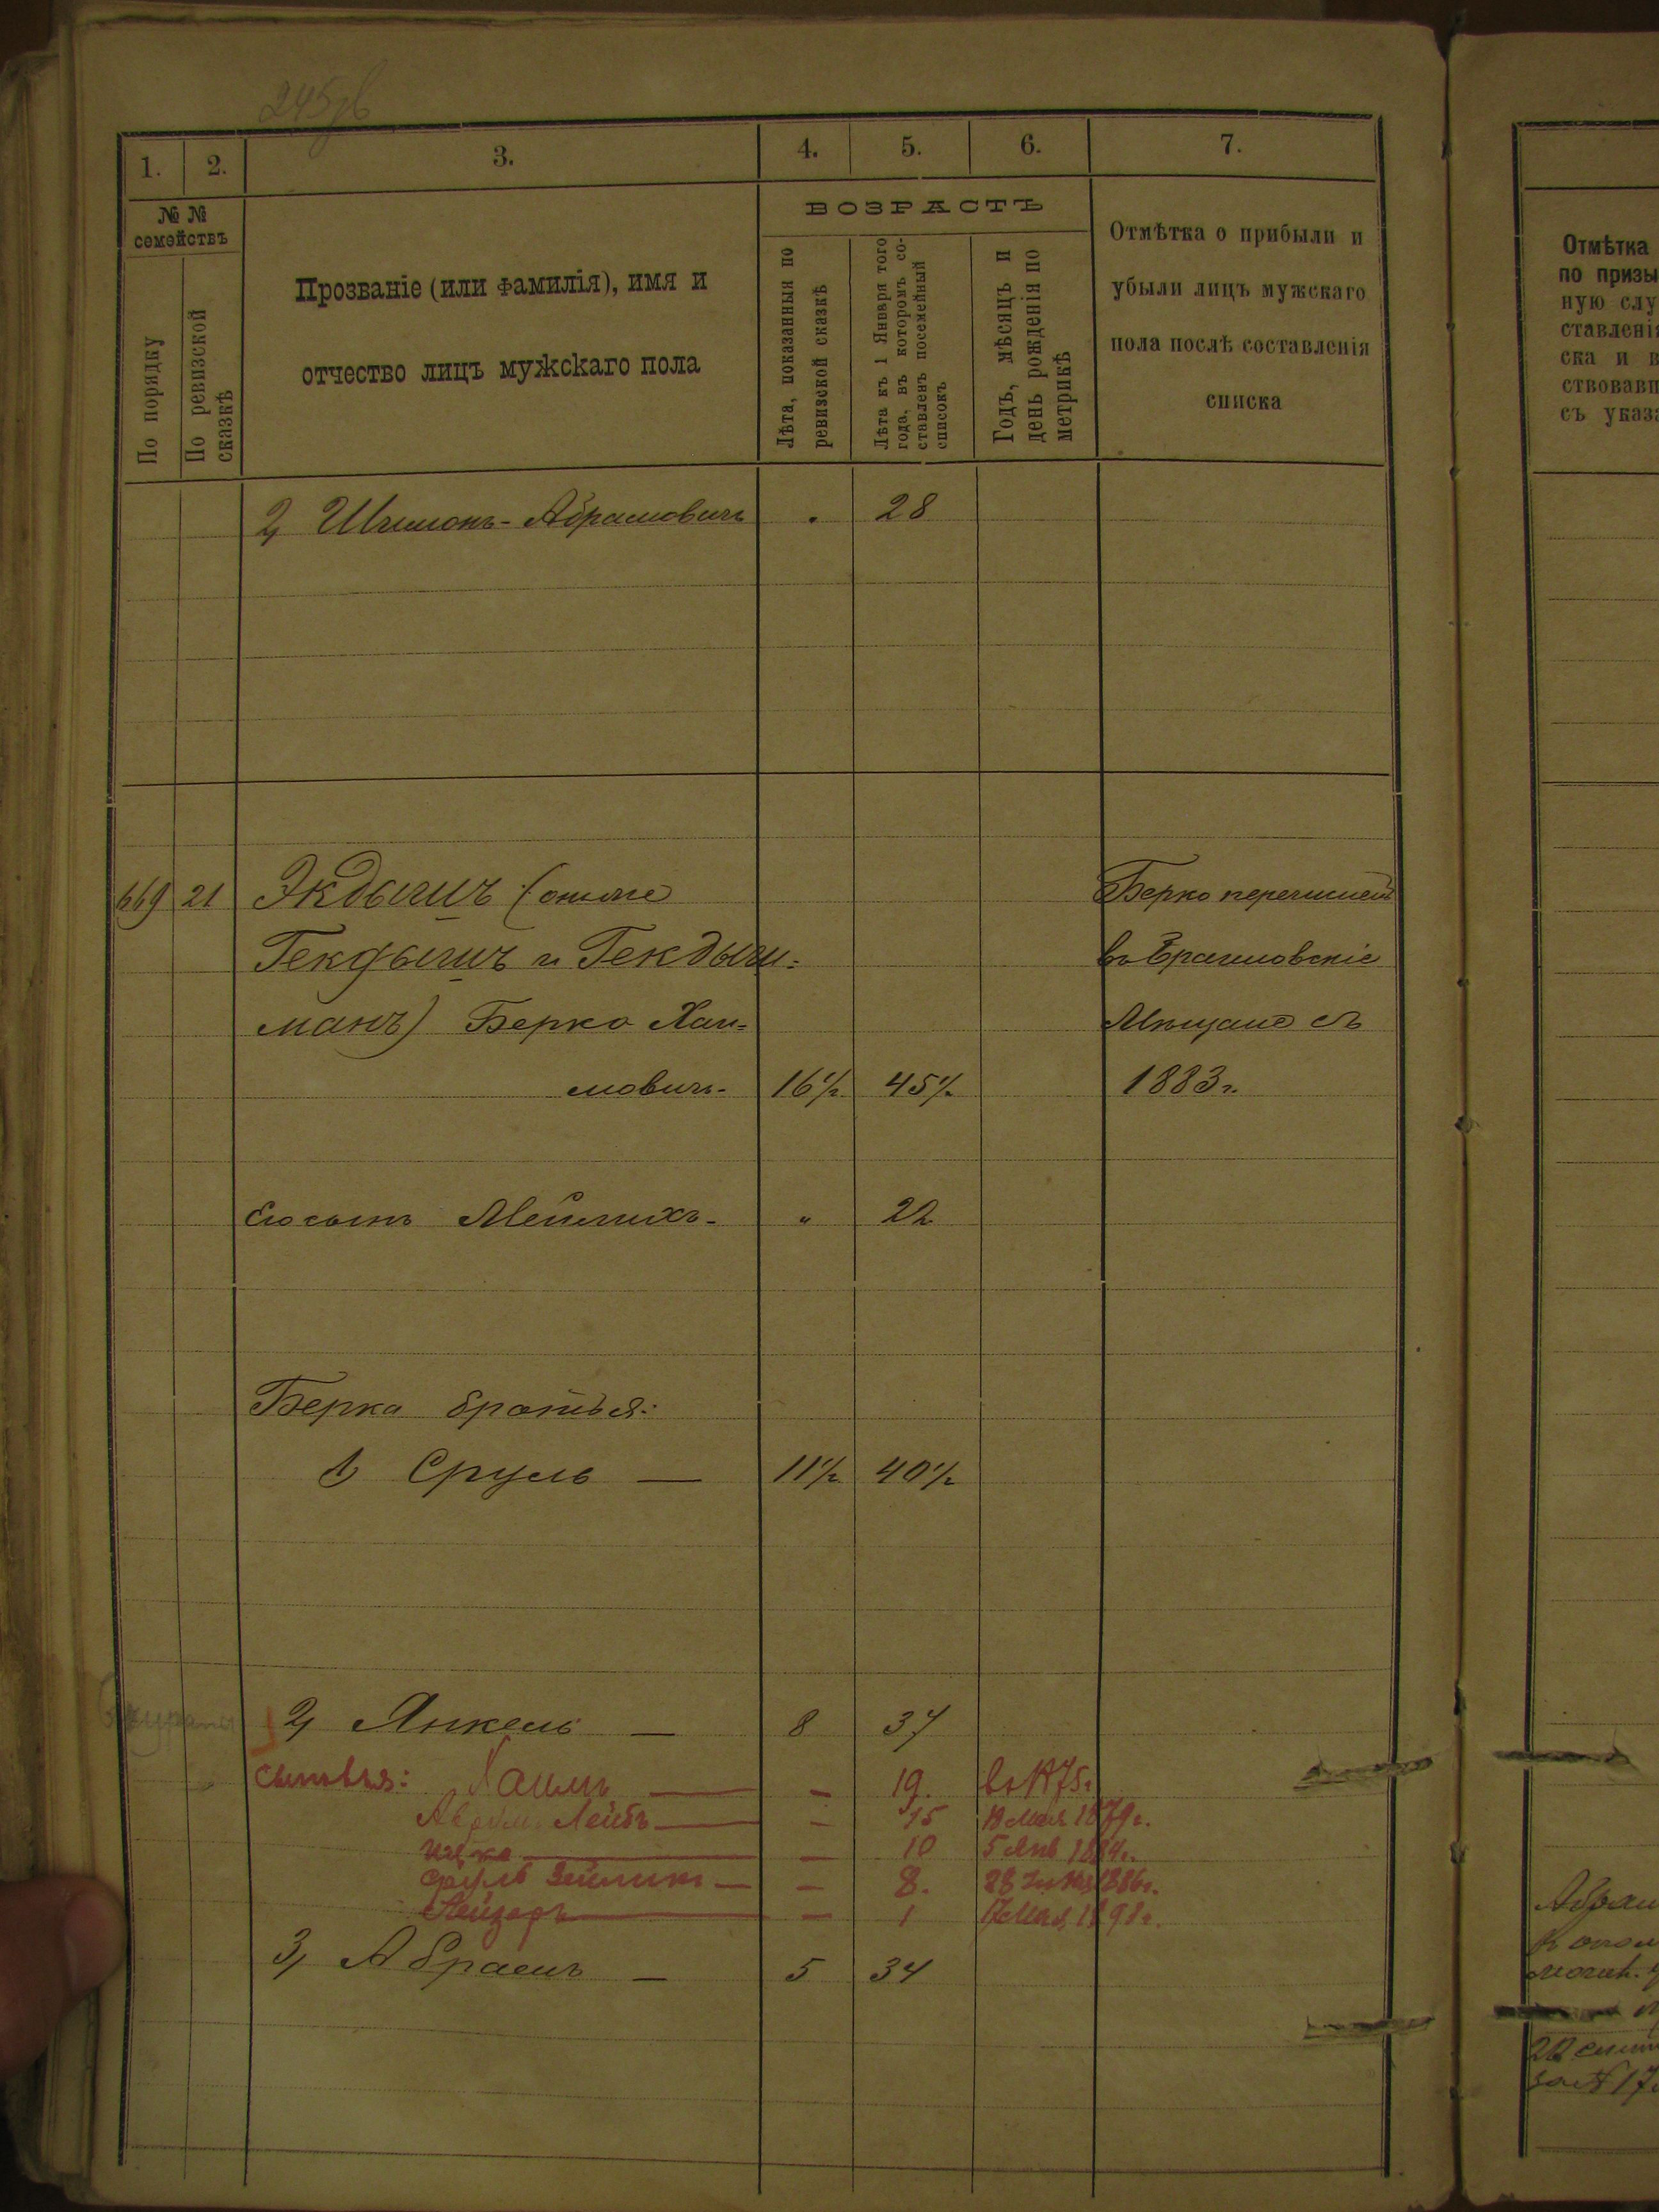 245об
1. 2. 3. 4. 5. 6. 7.
№ № семействъ
По порядку
По ревизской сказкѣ
Прозваніе (или фамилія), имя и
отчество лицъ мужскаго пола
ВОЗРАСТЪ
Лѣта, показанныя по
ревизской сказкѣ
Лѣта къ 1 Января того
года, въ которомъ со-
ставленъ посемейный
списокъ
Годъ, мѣсяцъ и
день рожденія по
метрикѣ
Отмѣтка о прибыли и
убыли лицъ мужскаго
пола послѣ составленія
списка
2, Шимонъ-Абрамовичъ 28
669 21 Экдышъ (онже Берко перечисленъ
Гекдышъ и Гекдыш= въ Браиловскіе
манъ) Берко Хаи= Мѣщане съ
мовичъ- 16½ 45½ 1883г.
Его сынъ Мейлихъ- " 22
Берка братья:
1, Сруль — 11½ 40½
2, Янкель — 8 37
Сыновья: Хаимъ — — 19. въ 1875г
Аврумъ Лейбъ — — 15 18 Мая 1879г.
Ицко — — 10 5 Янв 1884г.
Сруль Зейликъ — — 8. 28 1886г.
Лейзеръ — — 1 17 Мая 1891г.
3, Абрамъ — 5 34
Отмѣтка
по призы
ную слу
ставлені
ска и в
ствовавш
съ указа
Абрам